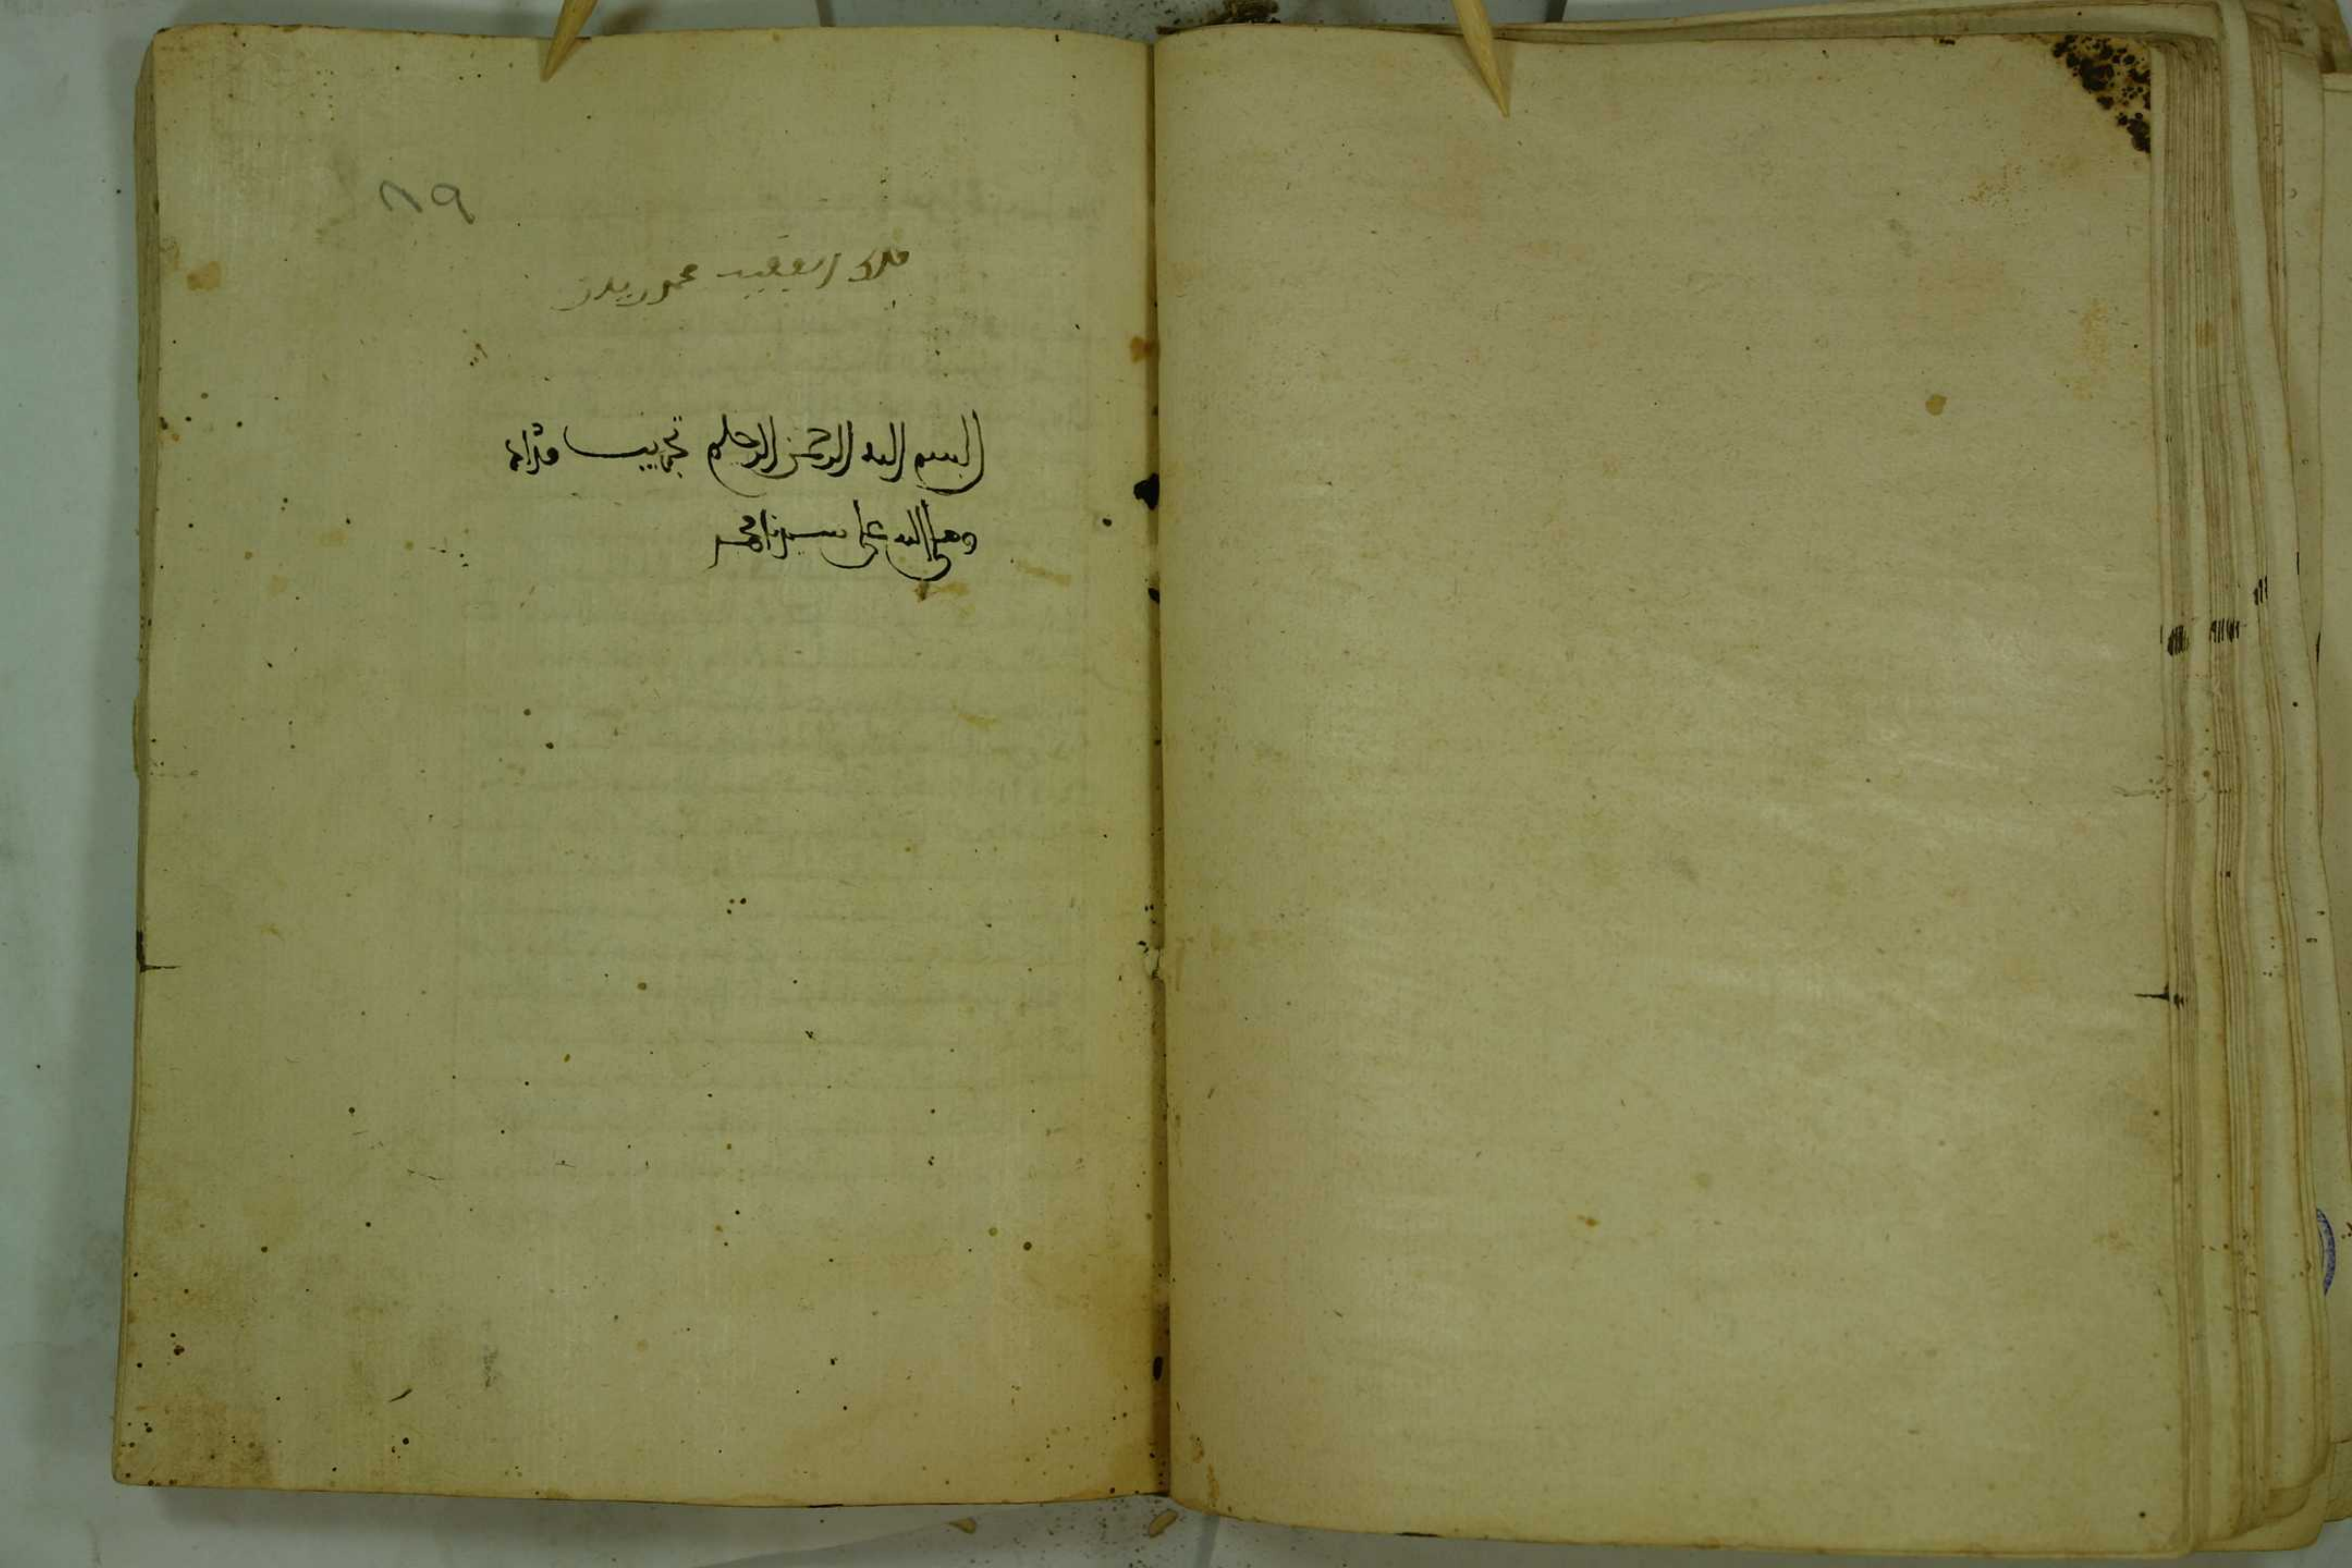 ٨٩
ملك الفقيه محمد
البسم الله الرحمن الرحيم تجريب مداد
وصلى الله على سيدنا محمد